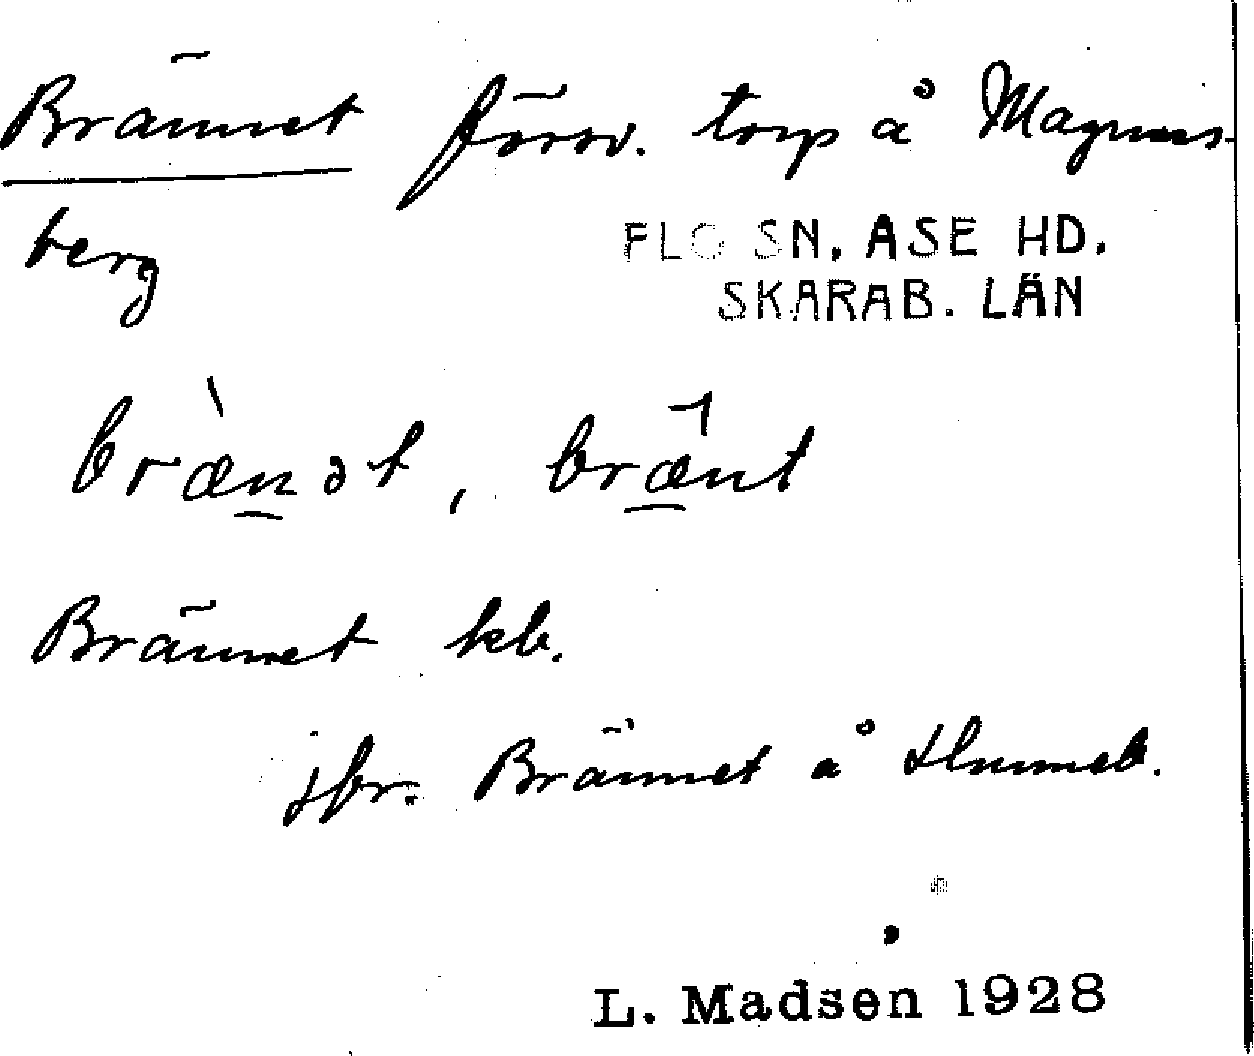 Brännet försv. torp å Magnus-
berg
FLO SN. ÅSE HD.
SKARAB. LÄN
brænət, brænt
Brännet kb.
jfr. Brännet å
L. Madsen 1928